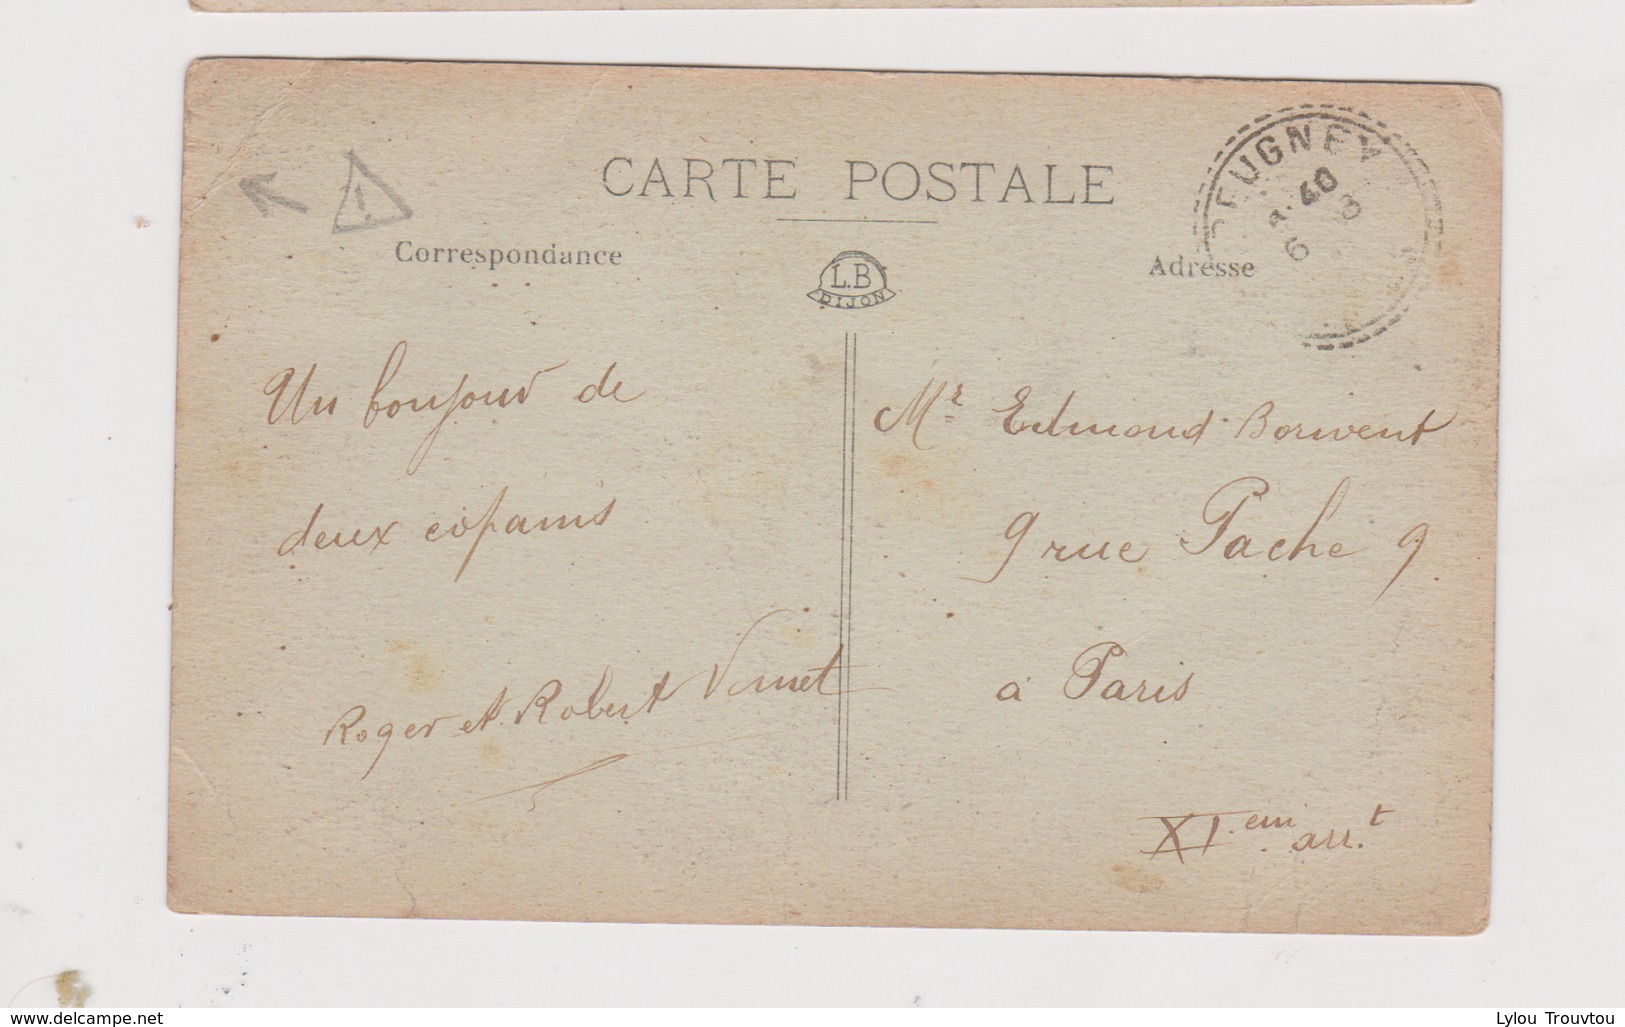 CARTE POSTALE
Correspondance
L.B
DIJON
Adresse
EUGNEY
40
6
Un bonjour de
deux copains
Roger et Robert
Mr Edmond
9 rue Pache 9
à Paris
XI.em arr.t
www.delcampe.net
Lylou Trouvtou